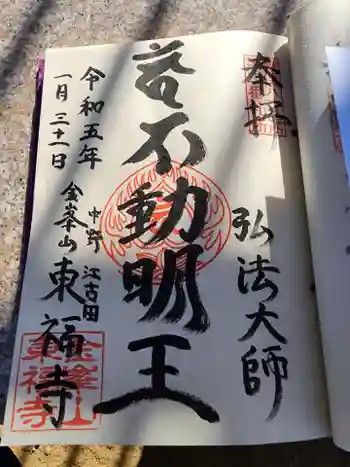 奉拝
弘法大師
苦不動明王
中野 江古田
金峯山 東福寺
令和五年
一月三十一日
金峯山
東福寺